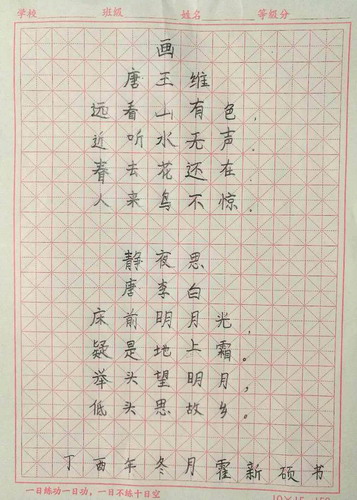 学校 班级 姓名 等级分
画
唐 王 维
远 看 山 有 色，
近 听 水 无 声．
春 去 花 还 在，
人 来 鸟 不 惊．
静 夜 思
唐 李 白
床 前 明 月 光，
疑 是 地 上 霜。
举 头 望 明 月，
低 头 思 故 乡。
丁 酉 年 冬 月 霍 新 硕 书
一日练功一日功，一日不练十日空